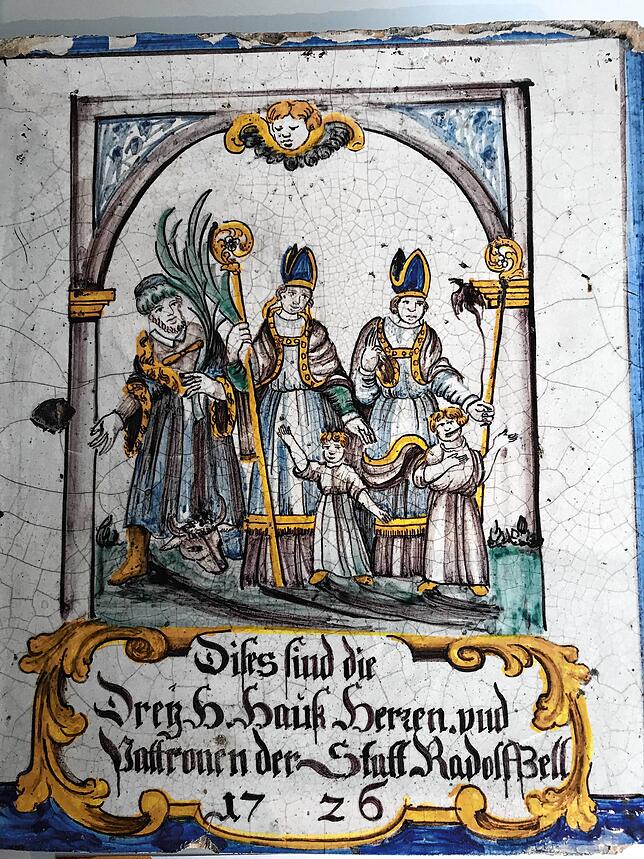 Dises sind die
Dreÿ H. Hauß Herren. und
Pattronen der Statt Radolffzell
1726